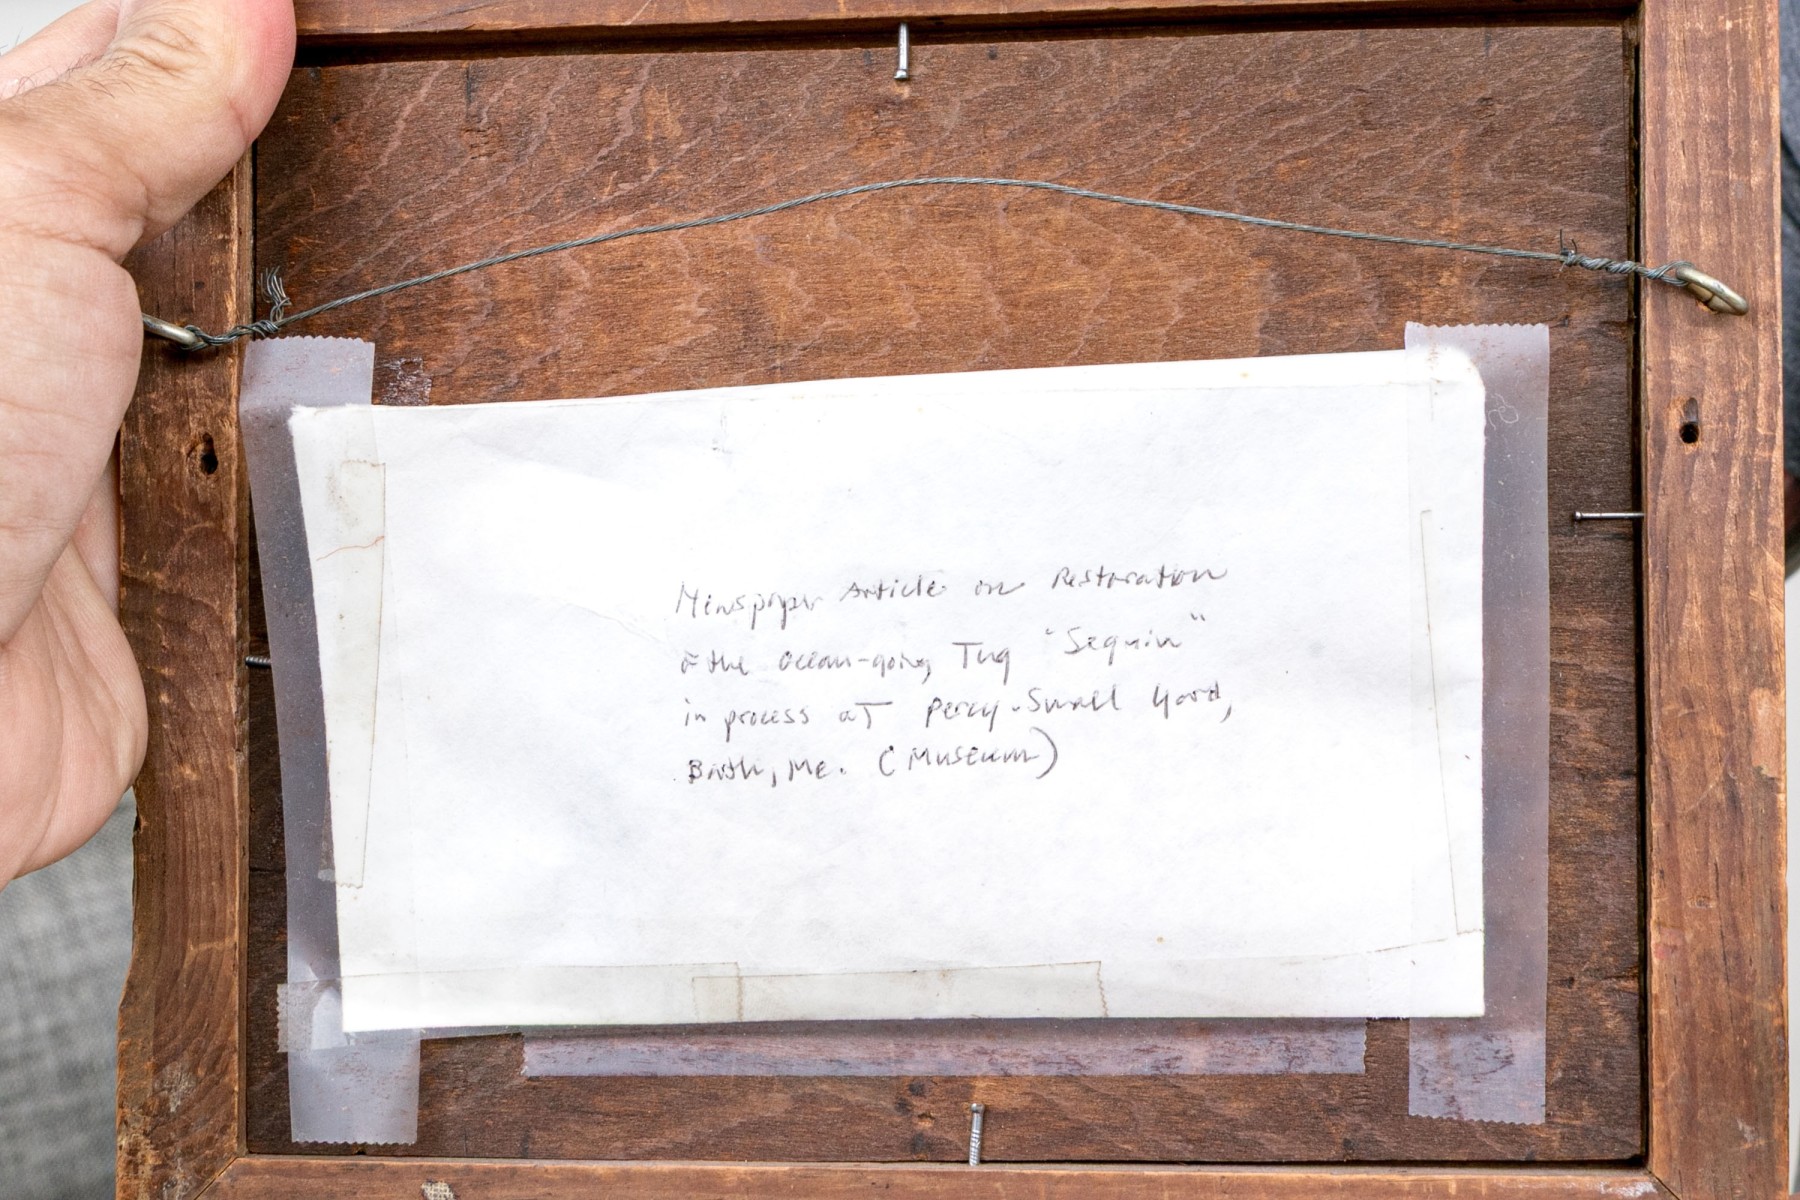 Newspaper Article on Restoration
of the ocean-going Tug "Sequin"
in process at Percy-Small Yard,
Bath, Me. (Museum)